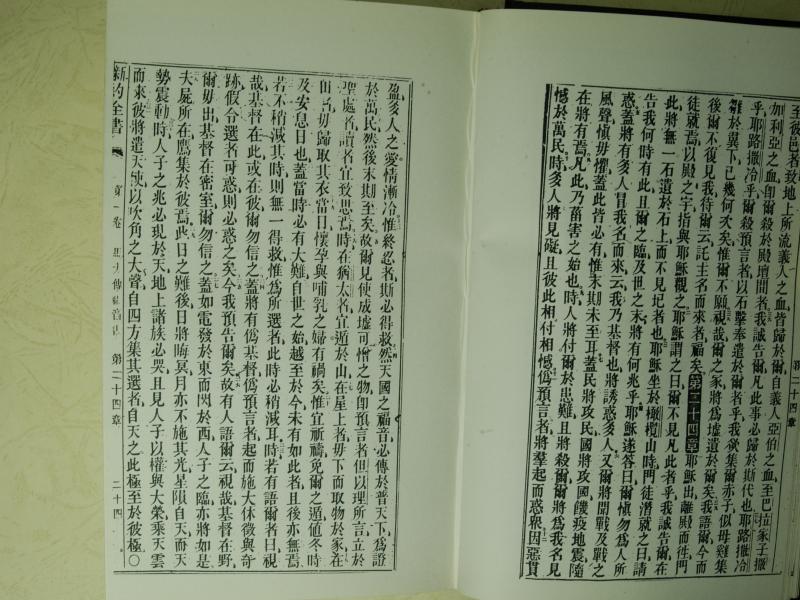 至彼邑者致地上所流義人之血皆歸於爾自義人亞伯之血至巴拉家子撒
加利亞之血卽爾殺於殿壇間者我誠告爾凡此事必歸於斯代也耶路撒冷
乎耶路撒冷乎爾殺預言者以石擊奉遣於爾者乎我欲集爾赤子似母雞集
雛於翼下已幾何次矣惟爾不願視哉爾之家將爲墟遺於爾矣我語爾今而
後爾不復見我待爾云託主名而來者福矣第二十四章耶穌出離殿而徃門
徒就焉以殿之宇指與耶穌觀之耶穌謂之曰爾不見凡此者乎我誠告爾在
此將無一石遺於石上而不見圮者也耶穌坐於橄欖山時門徒潛就之曰請
告我何時有此且爾之臨及世之末將有何兆乎耶穌遂答曰爾愼勿爲人所
惑蓋將有多人冒我名而來云我乃基督也將誘惑多人又爾將聞戰及戰之
風聲愼毋懼蓋此皆必有惟末期未至耳蓋民將攻民國將攻國饑疫地震隨
在將有焉凡此乃菑害之始也時人將付爾於患難且將殺爾爾將爲我名見
憾於萬民時多人將見礙且彼此相付相憾僞預言者將羣起而惑衆因惡貫
第二十四章
盈多人之愛情漸冷惟終忍者斯必得救然天國之福音必傳於普天下爲證
於萬民然後末期至矣故爾見使成墟可憎之物卽預言者但以理所言立於
聖處者讀者宜致思焉時在猶太者宜遁於山在屋上者毋下而取物於家在
田者毋歸取其衣當日懷孕與哺乳之婦有禍矣惟宜祈禱免爾之遁値冬時
及安息日也蓋當時必有大難自世之始越至於今未有如此者且後亦無焉
若不稍減其時則無一得救惟爲所選者此時必稍減耳時若有語爾者曰視
哉基督在此或在彼爾勿信之蓋將有僞基督僞預言者起而施大休徵與奇
跡假令選者可惑則必惑之矣今我預告爾矣故有人語爾云視哉基督在野
爾毋出基督在密室爾勿信之蓋如電發於東而閃於西人子之臨亦將如是
夫屍所在鷹集於彼焉此日之難後日將晦冥月亦不施其光星隕自天而天
勢震動時人子之兆必現於天地上諸族必哭且見人子以權與大榮乘天雲
而來彼將遣天使以吹角之大聲自四方集其選者自天之此極至於彼極〇
新約全書 第一卷 馬太傳福音書 第二十四章 二十四